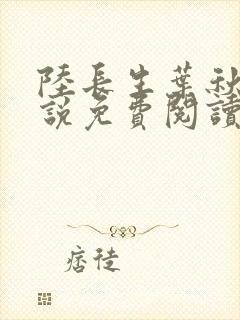 陸長生葉秋
說免費閱讀
痞徒